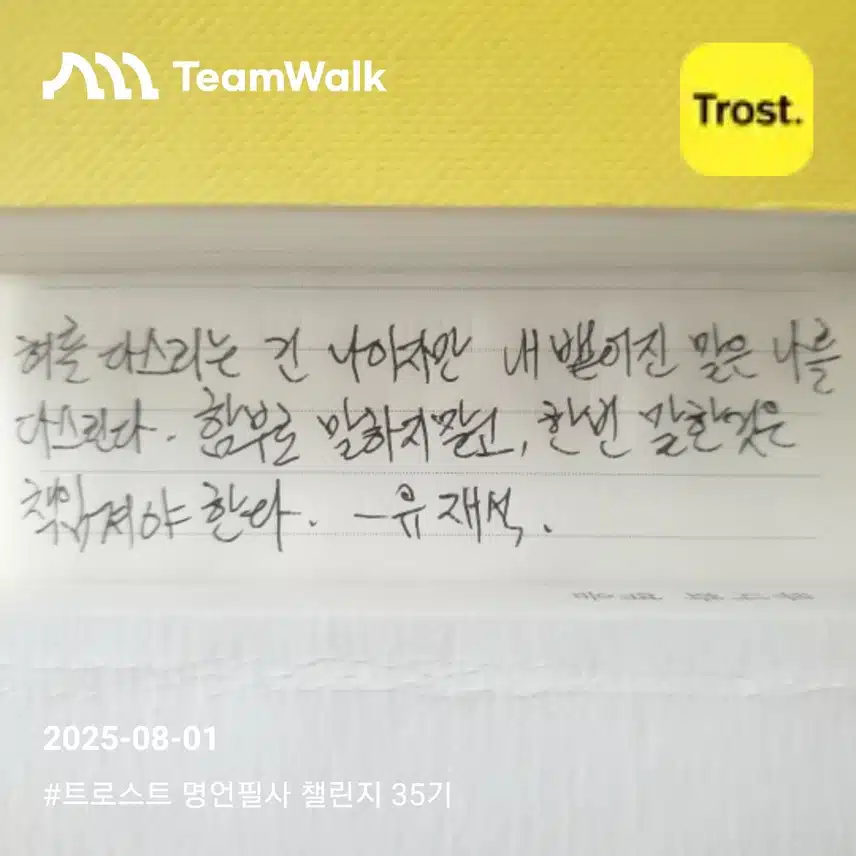 TeamWalk
Trost.
혀를 다스리는 건 나이지만 내 뱉어진 말은 나를
다스린다. 함부로 말하지말고, 한번 말한것은
책임져야 한다. -유재석.
2025-08-01
#트로스트 명언필사 챌린지 35기